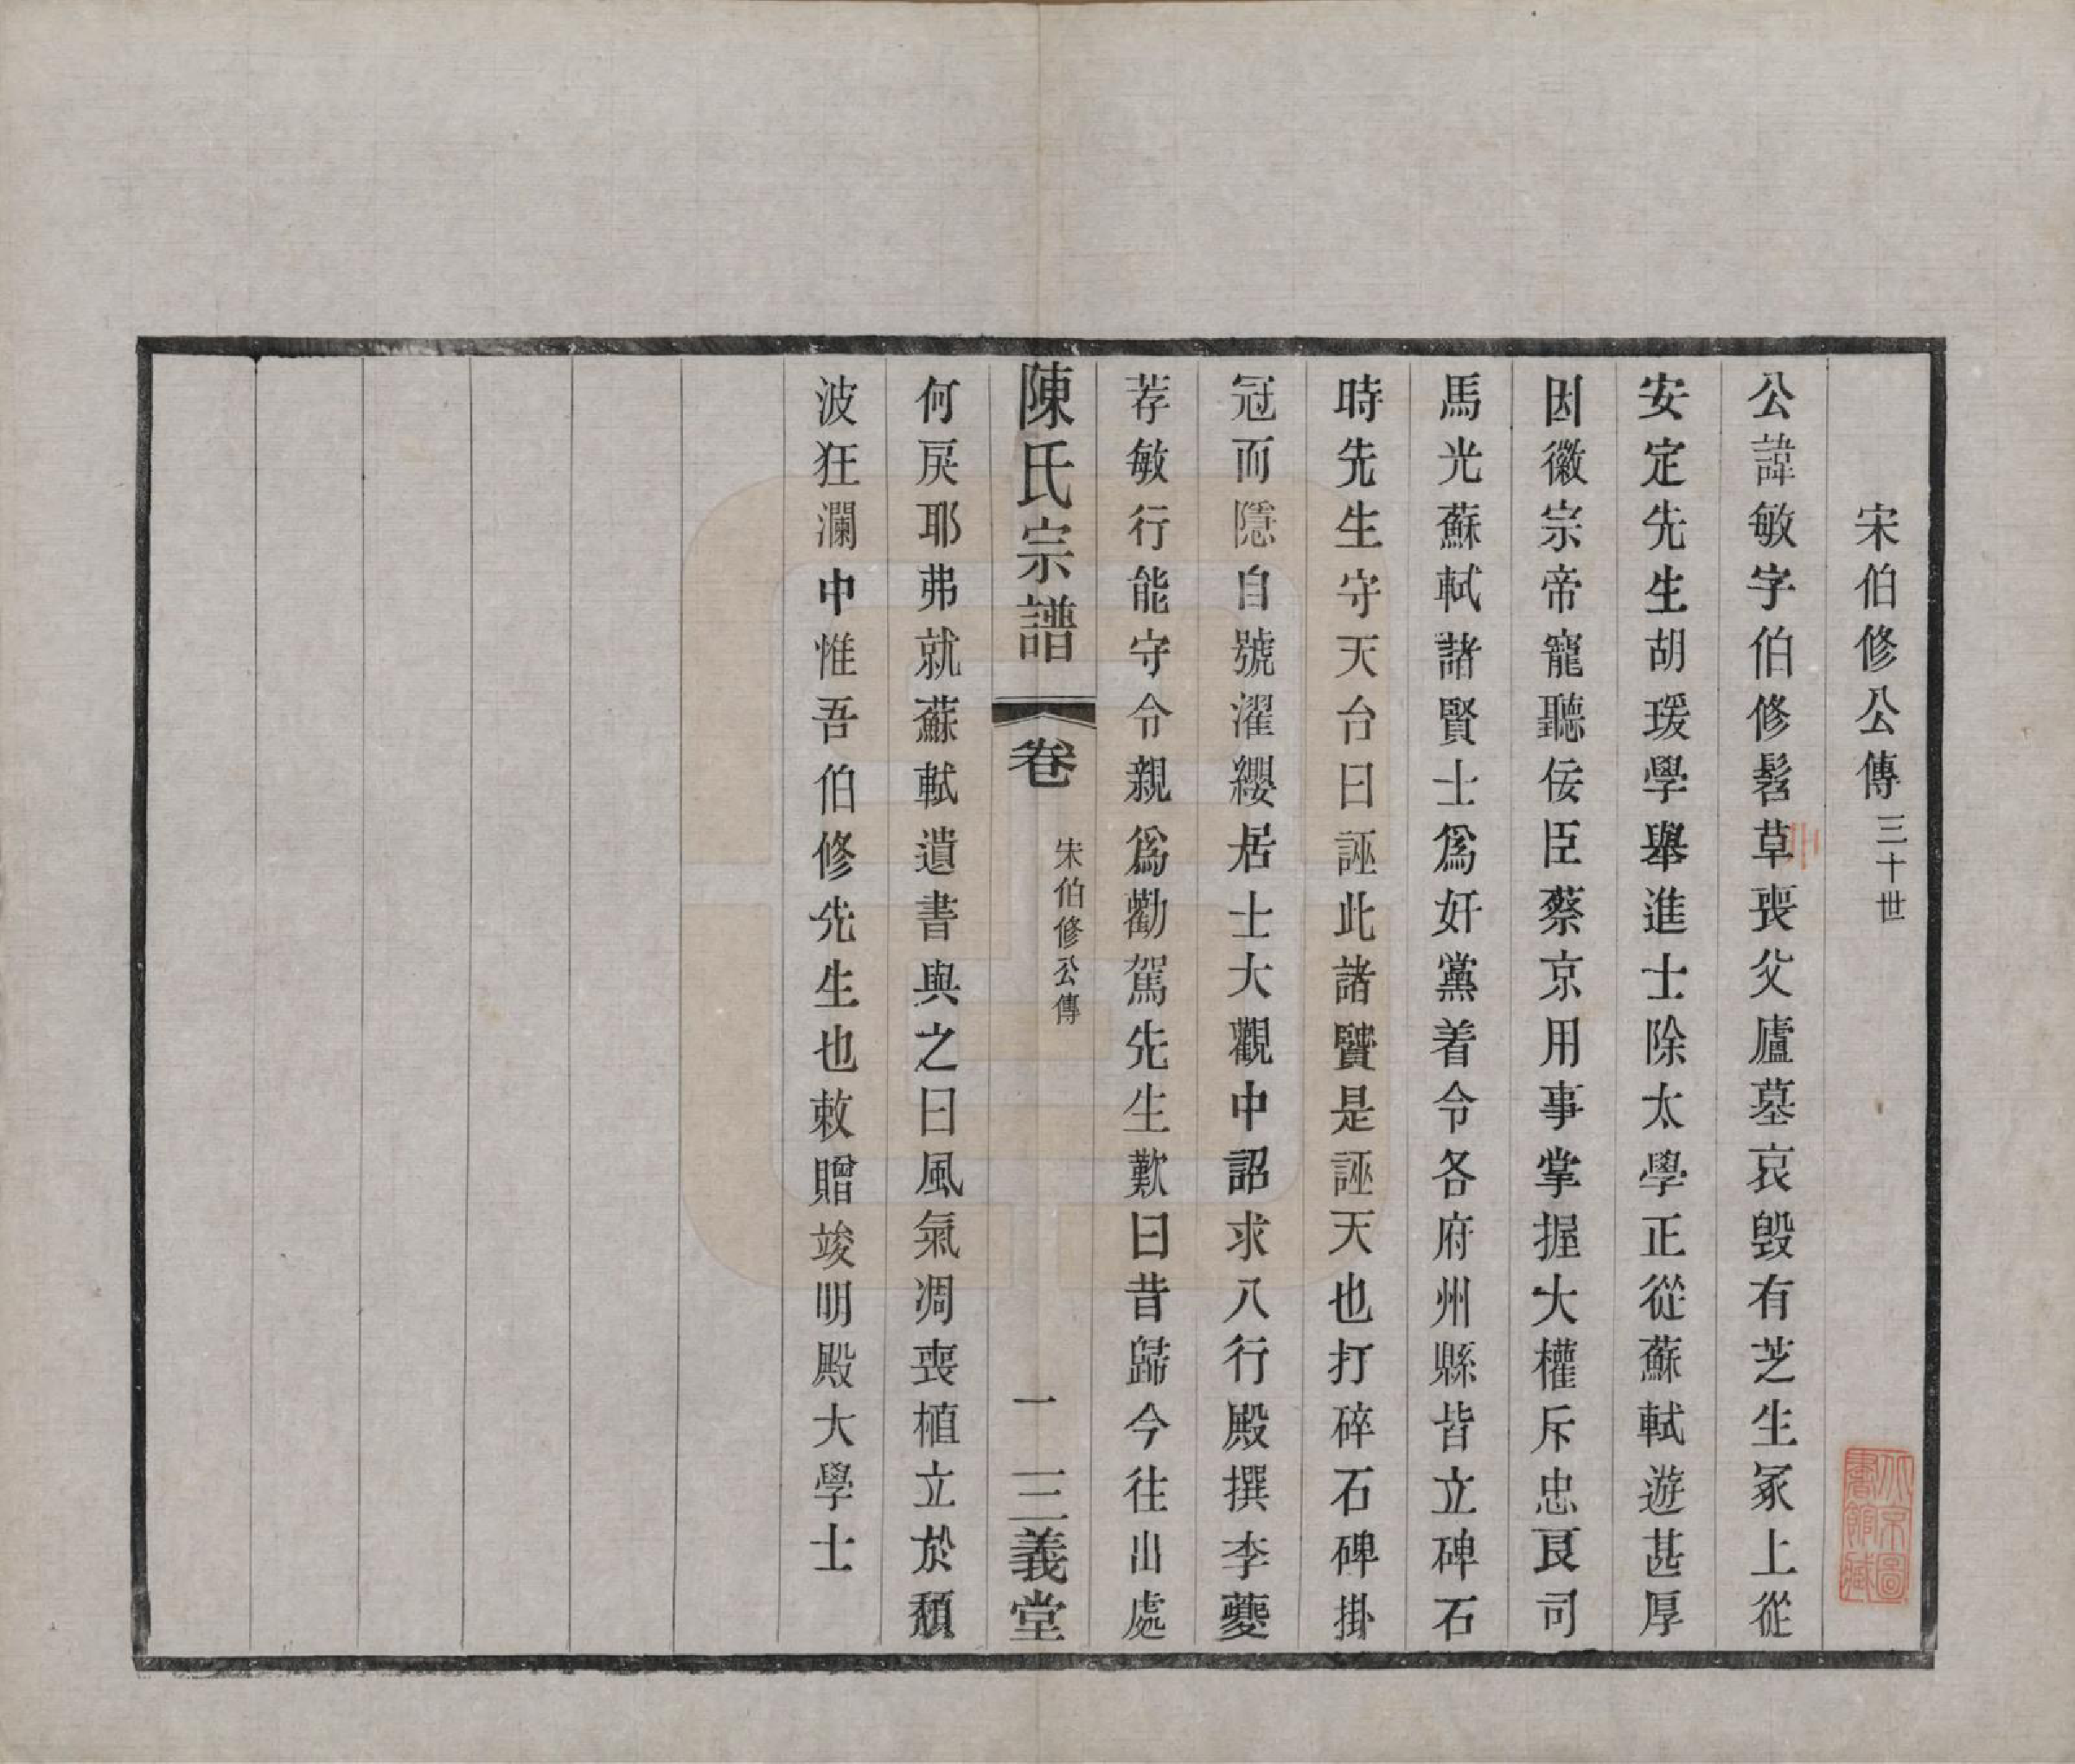 宋伯修公傳三十世
公諱敏字伯修髫草喪父廬墓哀毀有芝生冢上從
安定先生胡瑗學舉進士除太學正從蘇軾遊甚厚
因徽宗帝寵聽佞臣蔡京用事掌握大權斥忠良司
馬光蘇軾諸賢士爲奸黨着令各府州縣皆立碑石
時先生守天台曰誣此諸賢是誣天也打碎石碑掛
冠而隱自號濯纓居士大觀中詔求八行殿撰李夔
荐敏行能守令親爲勸駕先生歎曰昔歸今往出處
陳氏宗譜 卷 宋伯修公傳 一 三義堂
何戾耶弗就蘇軾遺書與之曰風氣凋喪植立於頹
波狂瀾中惟吾伯修先生也敕贈竣明殿大學士
北京圖書館藏